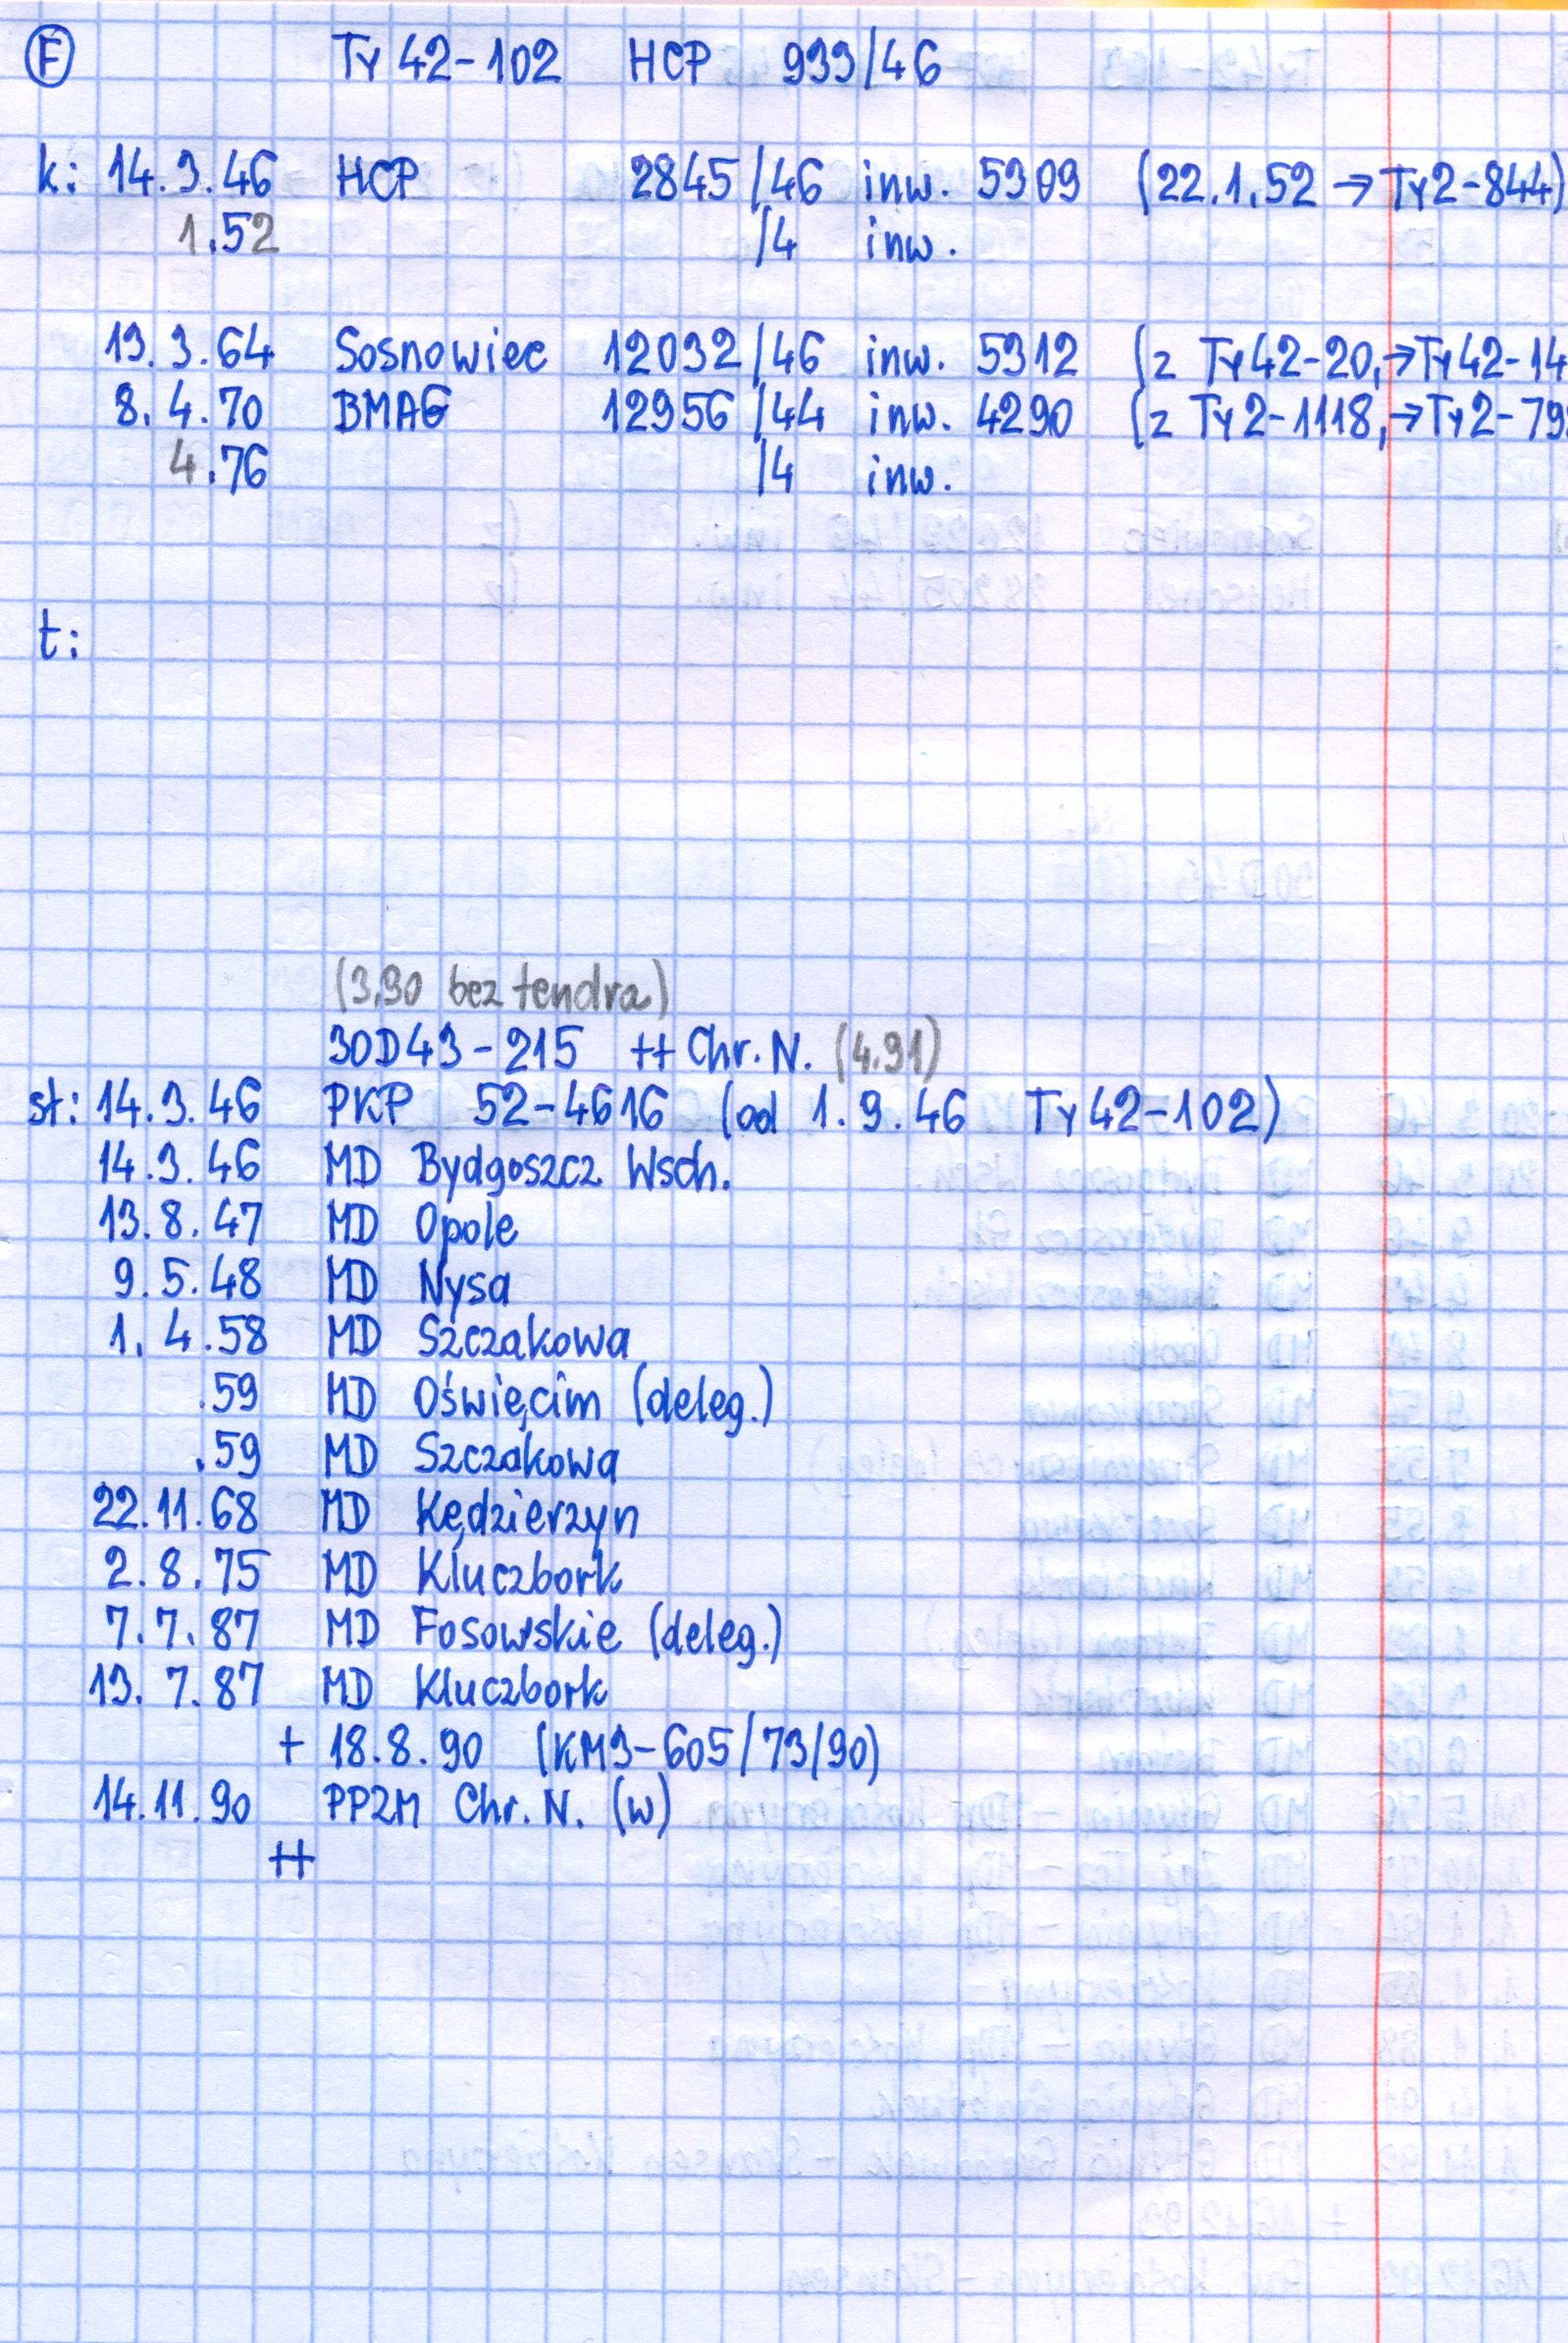 F Ty 42-102 HCP 933/46
k: 14.3.46 HCP 2845/46 inw. 5309 (22.1.52 → Ty2-844)
1.52 /4 inw.
13.3.64 Sosnowiec 12032/46 inw. 5312 (z Ty42-20, → Ty42-14
8.4.70 BMAG 12956/44 inw. 4290 (z Ty2-1118, → Ty2-79
4.76 /4 inw.
t:
(3.90 bez tendra)
30D43-215 ++ Chr. N. (4.91)
st: 14.3.46 PKP 52-4616 (od 1.9.46 Ty42-102)
14.3.46 MD Bydgoszcz Wsch.
13.8.47 MD Opole
9.5.48 MD Nysa
1.4.58 MD Szczakowa
.59 MD Oświęcim (deleg.)
.59 MD Szczakowa
22.11.68 MD Kędzierzyn
2.8.75 MD Kluczbork
7.7.87 MD Fosowskie (deleg.)
13.7.87 MD Kluczbork
+ 18.8.90 (KM3-605/73/90)
14.11.90 PPZM Chr. N. (w)
++